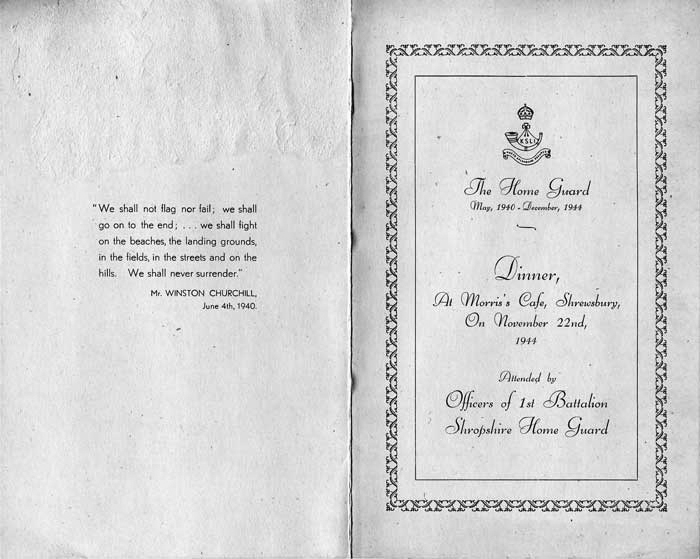 "We shall not flag nor fail; we shall
go on to the end; . . . we shall fight
on the beaches, the landing grounds,
in the fields, in the streets and on the
hills. We shall never surrender."
Mr. WINSTON CHURCHILL,
June 4th, 1940.
KSLI
The Home Guard
May, 1940 - December, 1944
Dinner,
At Morris's Cafe, Shrewsbury,
On November 22nd,
1944
Attended by
Officers of 1st Battalion
Shropshire Home Guard